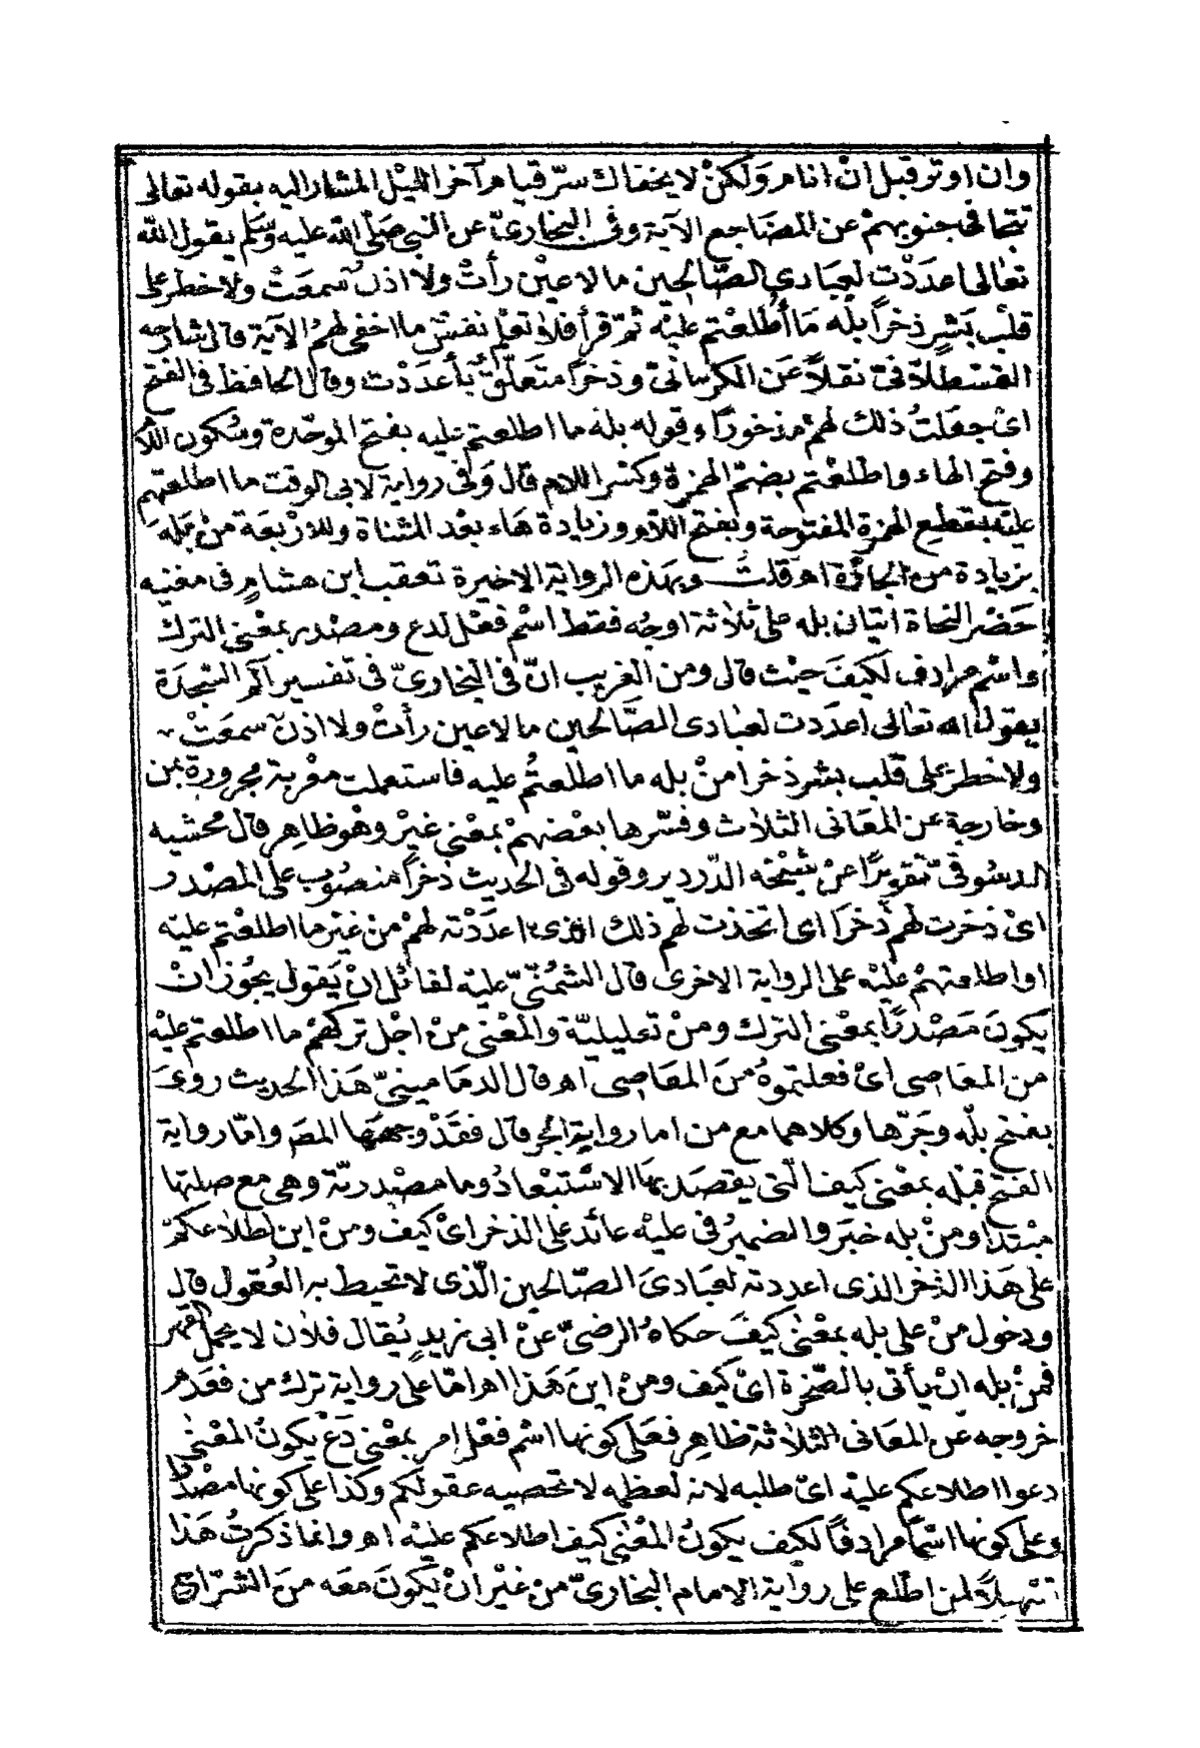 وان اوتر قبل انْ انام وَلكنْ لا يخفاك سرّ قيام آخر الليْل المشار اليه بقوله تعالى
تتجافى جنوبهمْ عن المضَاجع الآية وفى البخاريّ عن النبى صَلى الله عليه وَسَلم يقول الله
تعَالى اعدَدْت لعِبَادي الصَّالحِين ما لا عيْن رأتْ ولا اذن سَمعَتْ ولا خطر على
قلْب بَشرٍ ذخراً بلْه مَا أُطلعْتم عليْه ثمّ قرأ فلا تعْلم نفسٌ ما اخفى لهمُ الآية قال شارحه
القسْطلّانىّ نقلاً عَن الكرْمانىّ وذخرًا متعَلّقٌ بأعدَدْت وقال الحافظ فى الفتح
اىْ جعَلتُ ذلك لهمْ مذخورًا وقوله بلْه ما اطلعتم عليه بفتح الموحّدة وسُكون اللّام
وفتح الهاء واطلعْتم بضمّ الهمزة وكسْر اللام قال وَفى رواية لابى الوقت ما اطلعتهم
عليْه بقطع الهمزة المفتوحة وبفتح اللّام وزيادة هَاء بعْد المثناة وللارْبعَة منْ بَلْه
بزيادة من الجارّة اهـ قلتُ وبهذه الرواية الاخيرة تعقب ابن هشامٍ فى مغنيه
حَصْر النحَاة اتيان بله على ثلاثة اوجُه فقط اسْم فعْل لدع ومصْدر بمعْنى الترك
واسْم مرادف لكيفَ حيْث قال ومن الغريب انّ فى البخاريّ فى تفسير آلم السّجدَة
يقول الله تعَالى اعدَدت لعبَادى الصَّالحين ما لا عين رأتْ ولا اذن سمعَتْ
ولا خطر على قلب بشر ذخرا منْ بله ما اطلعتُم عليه فاستعملت معْربة مجرورة بمن
وخارجة عن المعَانى الثلاث وفسّرها بعْضهمْ بمعْنى غيْر وهُو ظاهِر قال محُشيه
الدسُوقىّ تقريرًا عنْ شيْخه الدّردير وقوله فى الحديث ذخراً منصُوب على المصْدر
اىْ ذخرت لهم ذُخرًا اى اتخذت لهم ذلك الذى اعدَدْته لهمْ من غيْر ما اطلعْتم عليْه
او اطلعتهمْ عليْه على الرواية الاخرى قال الشمُنّىّ عليْه لقائل انْ يَقول يجُوز انْ
يكونَ مَصْدرًا بمعْنى الترك ومنْ تعليليّة والمعْنى منْ اجْل تركهمْ ما اطلعتم عليْه
من المعَاصى اىْ فعلتموهُ منَ المعَاصى اهـ قال الدمَامينىّ هَذا الحديث روىَ
بفتح بلْه وجَرّها وكلاهما مع من اما رواية الجر قال فقدْ وجهَها المصَ وامّا رواية
الفتح فبْله بمعْنى كيفَ الّتى يقصَد بهَا الاسْتبْعادُ وما مصْدريّة وهى مع صلتها
مبْتدأ ومنْ بله خبَر والضميرُ فى عليْه عائد على الذخر اىْ كيفَ ومنْ اين اطلاعكمْ
على هَذا الذخر الذى اعددته لعبَادىَ الصّالحين الّذى لا تحيط به العُقول قال
ودخول منْ على بله بمعْنى كيفَ حكاهُ الرضىّ عنْ ابى زيدٍ يُقال فلان لا يحمل الفهر
فمنْ بله انْ يأتى بالصّخرة اىْ كيف ومنْ اينَ هَذا اهـ امّا على رواية ترك من فعَدم
خروجه عَن المعَانى الثلاثة ظاهِر فعَلى كونها اسْم فعْل امرٍ بمعْنى دَعْ يكونُ المعْنى
دعوا اطلاعكم عليْه اىْ طلبه لانه لعظمه لا تحصيه عقولكم وكذا على كونها مصْدرا
وعلى كونها اسْمًا مرادفًا لكيف يكونُ المعْنى كيفَ اطلاعكم عليْه اهـ وانما ذكرتُ هَذا
تسْهيلاً لمن اطّلع على رواية الامام البخاريّ منْ غيْر انْ يكونَ معَه منَ الشرّاح